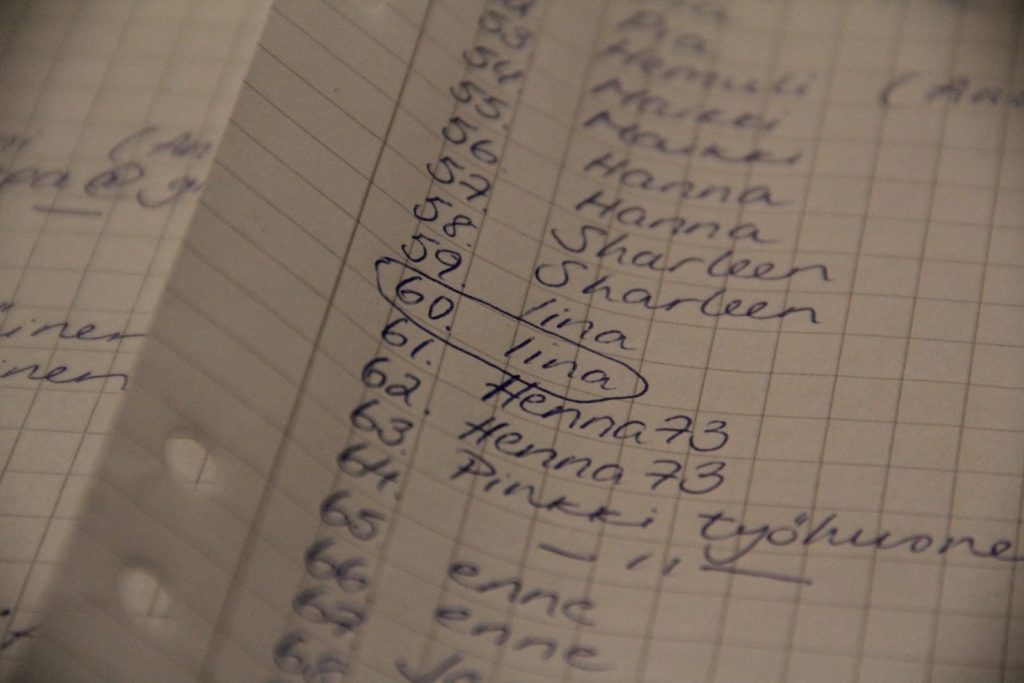 (An
pa@g
inen
inen
Pia
Hemuli (An
53. Maikki
54. Maikki
55. Hanna
56. Hanna
57. Sharleen
58. Sharleen
59. Iina
60. Iina
61. Henna73
62. Henna 73
63. Pinkki työhuone
64. — ,, —
65 enne
66 enne
67 Ja
68